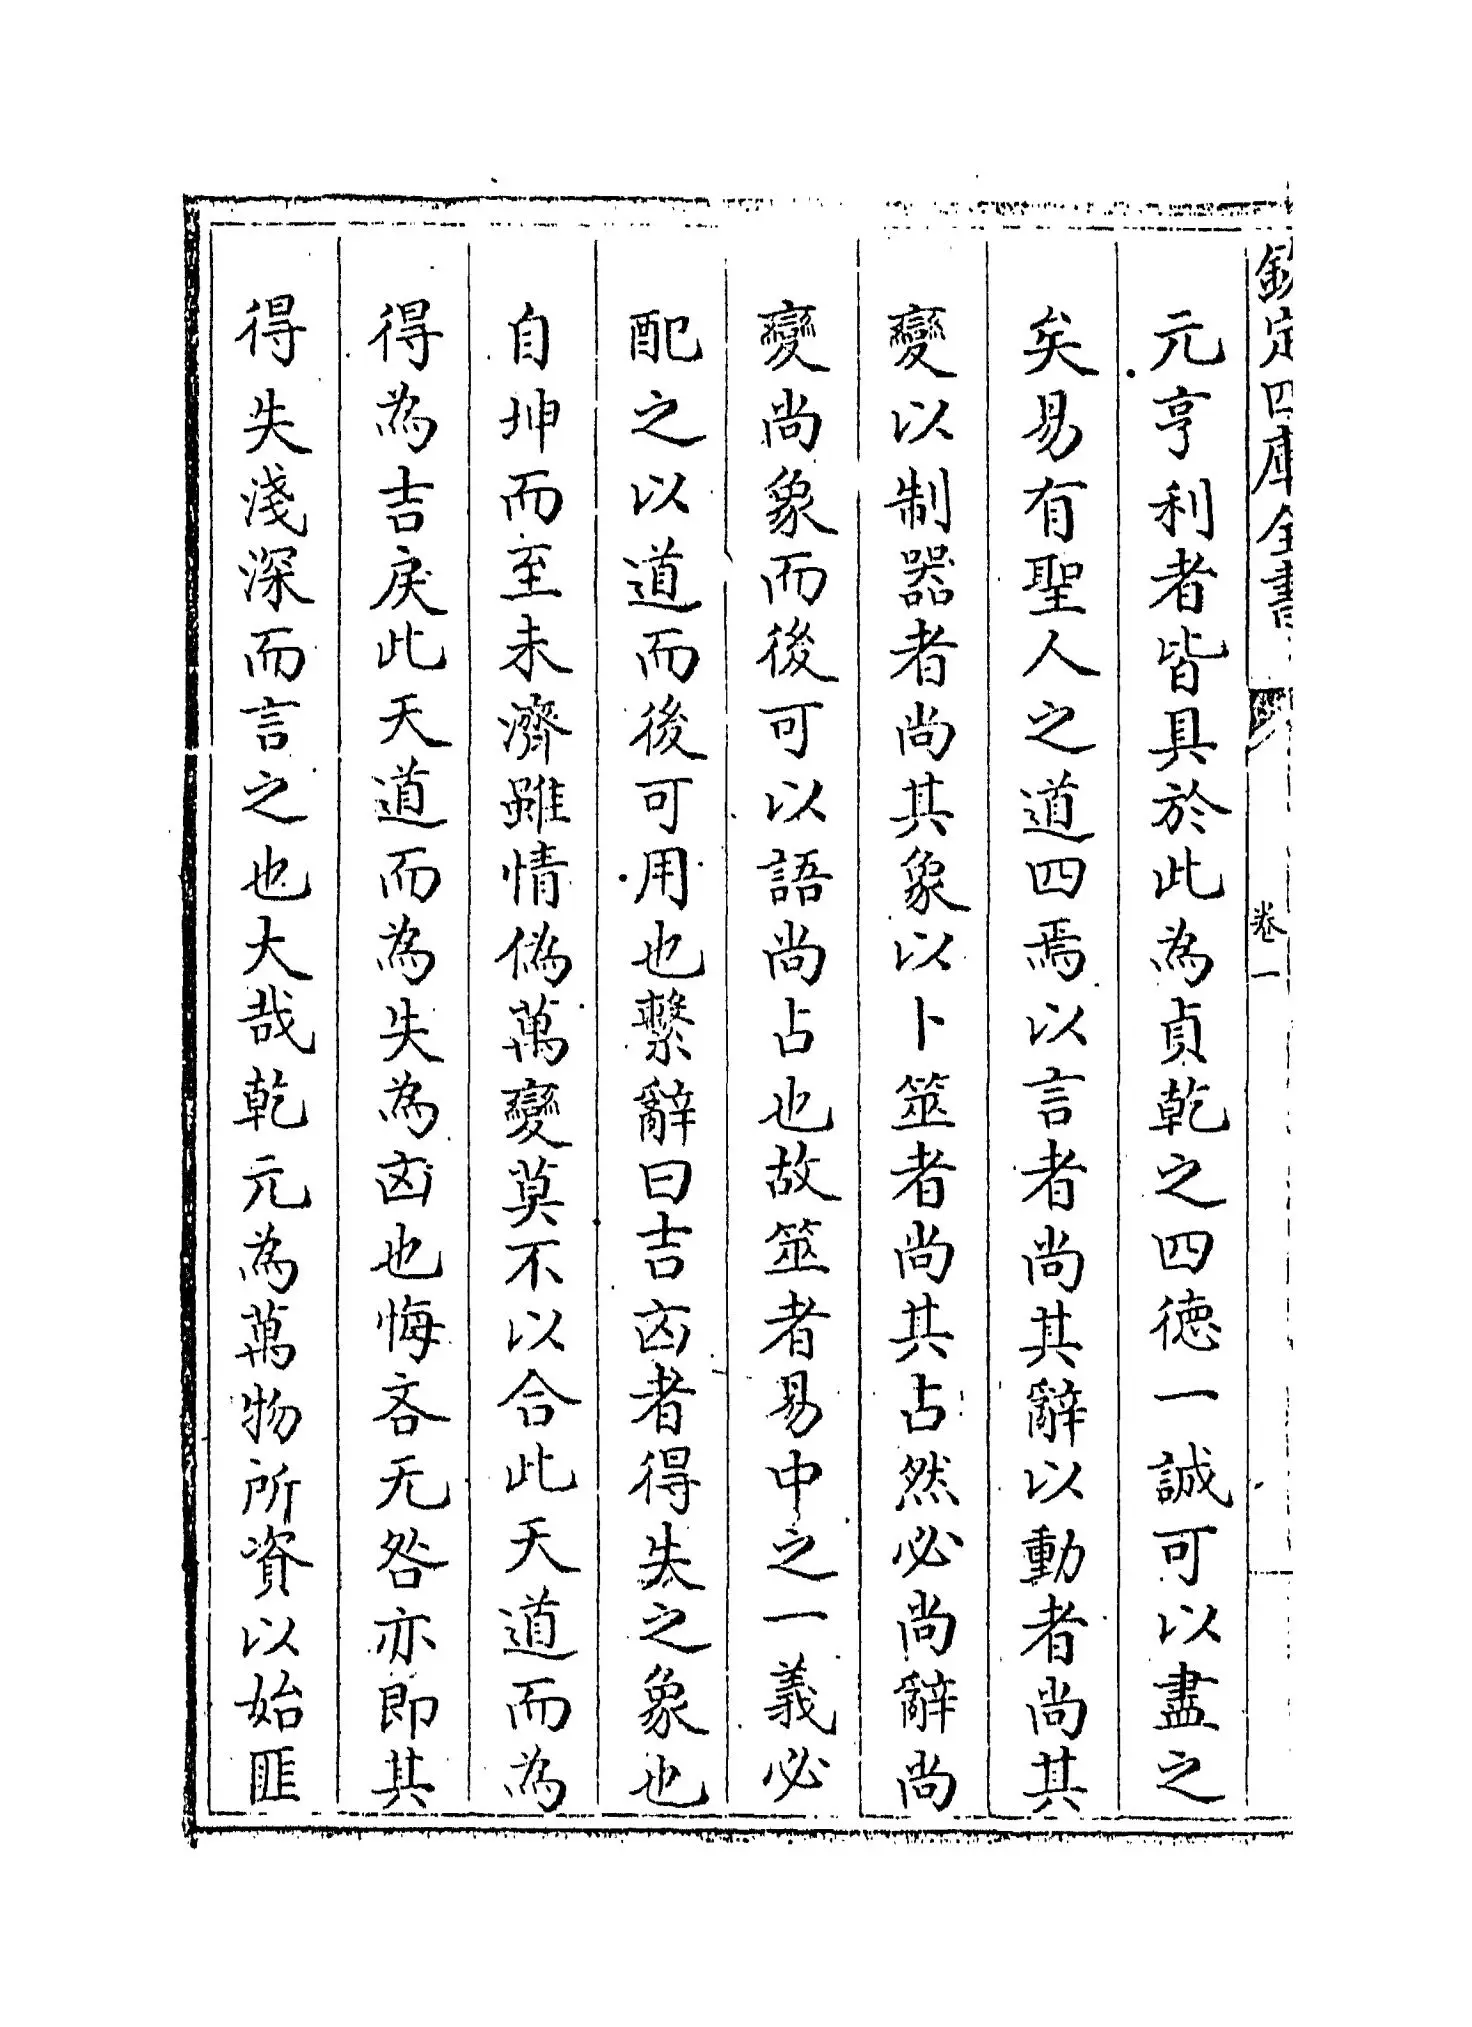 欽定四庫全書
卷一
元亨利者皆具於此為貞乾之四徳一誠可以盡之
矣易有聖人之道四焉以言者尚其辭以動者尚其
變以制器者尚其象以卜筮者尚其占然必尚辭尚
變尚象而後可以語尚占也故筮者易中之一義必
配之以道而後可用也繫辭曰吉㐫者得失之象也
自坤而至未濟雖情偽萬變莫不以合此天道而為
得為吉戾此天道而為失為㐫也悔吝无咎亦即其
得失淺深而言之也大哉乾元為萬物所資以始匪